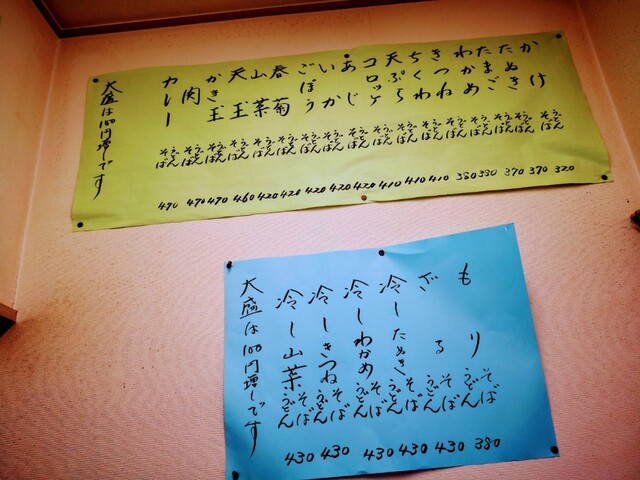 かけ そば うどん 320
たぬき そば うどん 370
たまご そば うどん 370
わかめ そば うどん 380
きつね そば うどん 380
ちくわ そば うどん 410
天ぷら そば うどん 410
コロッケ そば うどん 410
あじ そば うどん 420
いか そば うどん 420
ごぼう そば うどん 420
春菊 そば うどん 420
山菜 そば うどん 420
天玉 そば うどん 460
かき玉 そば うどん 470
肉 そば うどん 470
カレー そば うどん 490
大盛は100円増しです
もり そば うどん 380
ざる そば うどん 430
冷したぬき そば うどん 430
冷しわかめ そば うどん 430
冷しきつね そば うどん 430
冷し山菜 そば うどん 430
大盛は100円増しです